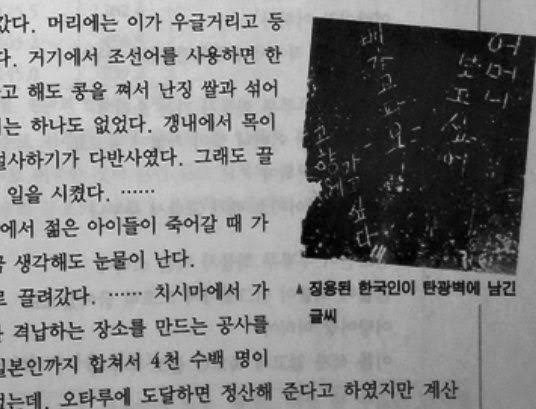 갔다. 머리에는 이가 우글거리고 등
다. 거기에서 조선어를 사용하면 한
고 해도 콩을 쪄서 난징 쌀과 섞어
는 하나도 없었다. 갱내에서 목이
설사하기가 다반사였다. 그래도 끌
일을 시켰다. ……
에서 젊은 아이들이 죽어갈 때 가
금 생각해도 눈물이 난다.
로 끌려갔다. …… 치시마에서 가
격납하는 장소를 만드는 공사를
일본인까지 합쳐서 4천 수백 명이
는데, 오타루에 도달하면 정산해 준다고 하였지만 계산
어머니
보고싶어
배가고파요
고향에
가고싶다
▲ 징용된 한국인이 탄광벽에 남긴
글씨